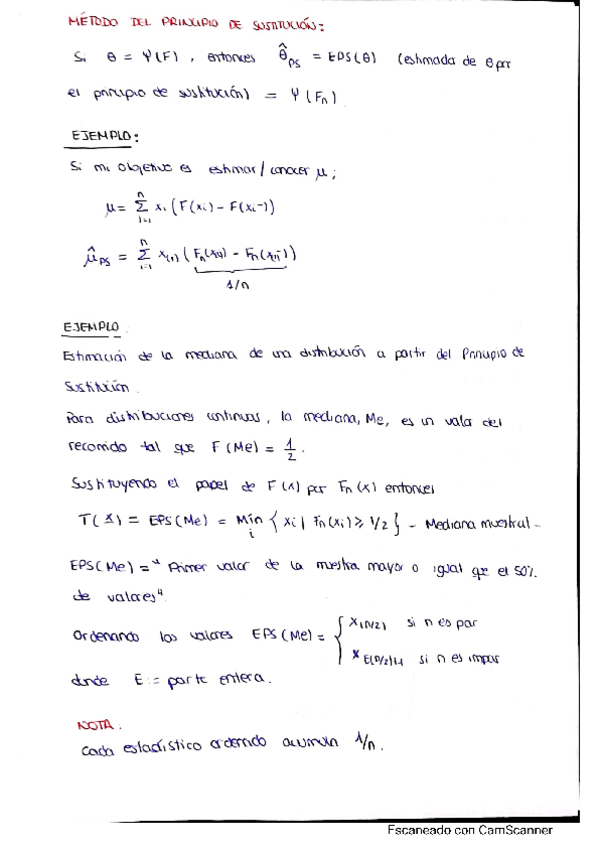 MÉTODO DEL PRINCIPIO DE SUSTITUCIÓN:
Si θ = Ψ(F), entonces θ̂_PS = EPS(θ) (estimada de θ por
el principio de sustitución) = Ψ(Fₙ)
EJEMPLO:
Si mi objetivo es estimar/conocer μ;
μ = Σ_{i=1}^{n} xᵢ (F(xᵢ) - F(xᵢ⁻))
μ̂_PS = Σ_{i=1}^{n} x₍ᵢ₎ (Fₙ(x₍ᵢ₎) - Fₙ(x₍ᵢ₎⁻))
1/n
EJEMPLO
Estimación de la mediana de una distribución a partir del Principio de
Sustitución.
Para distribuciones continuas, la mediana, Me, es un valor del
recorrido tal que F(Me) = 1/2.
Sustituyendo el papel de F(x) por Fₙ(x) entonces
T(X) = EPS(Me) = Min_i {xᵢ | Fₙ(xᵢ) ≥ 1/2} - Mediana muestral -
EPS(Me) = " Primer valor de la muestra mayor o igual que el 50%
de valores"
Ordenando los valores EPS(Me) = { X_(n/2) si n es par
X_E(n/2)+1 si n es impar
donde E := parte entera.
NOTA:
Cada estadístico ordenado acumula 1/n.
Escaneado con CamScanner